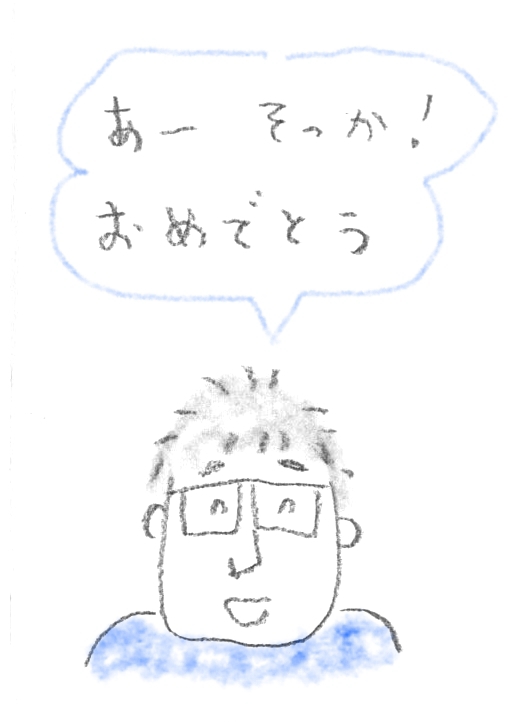 あー そっか!
おめでとう